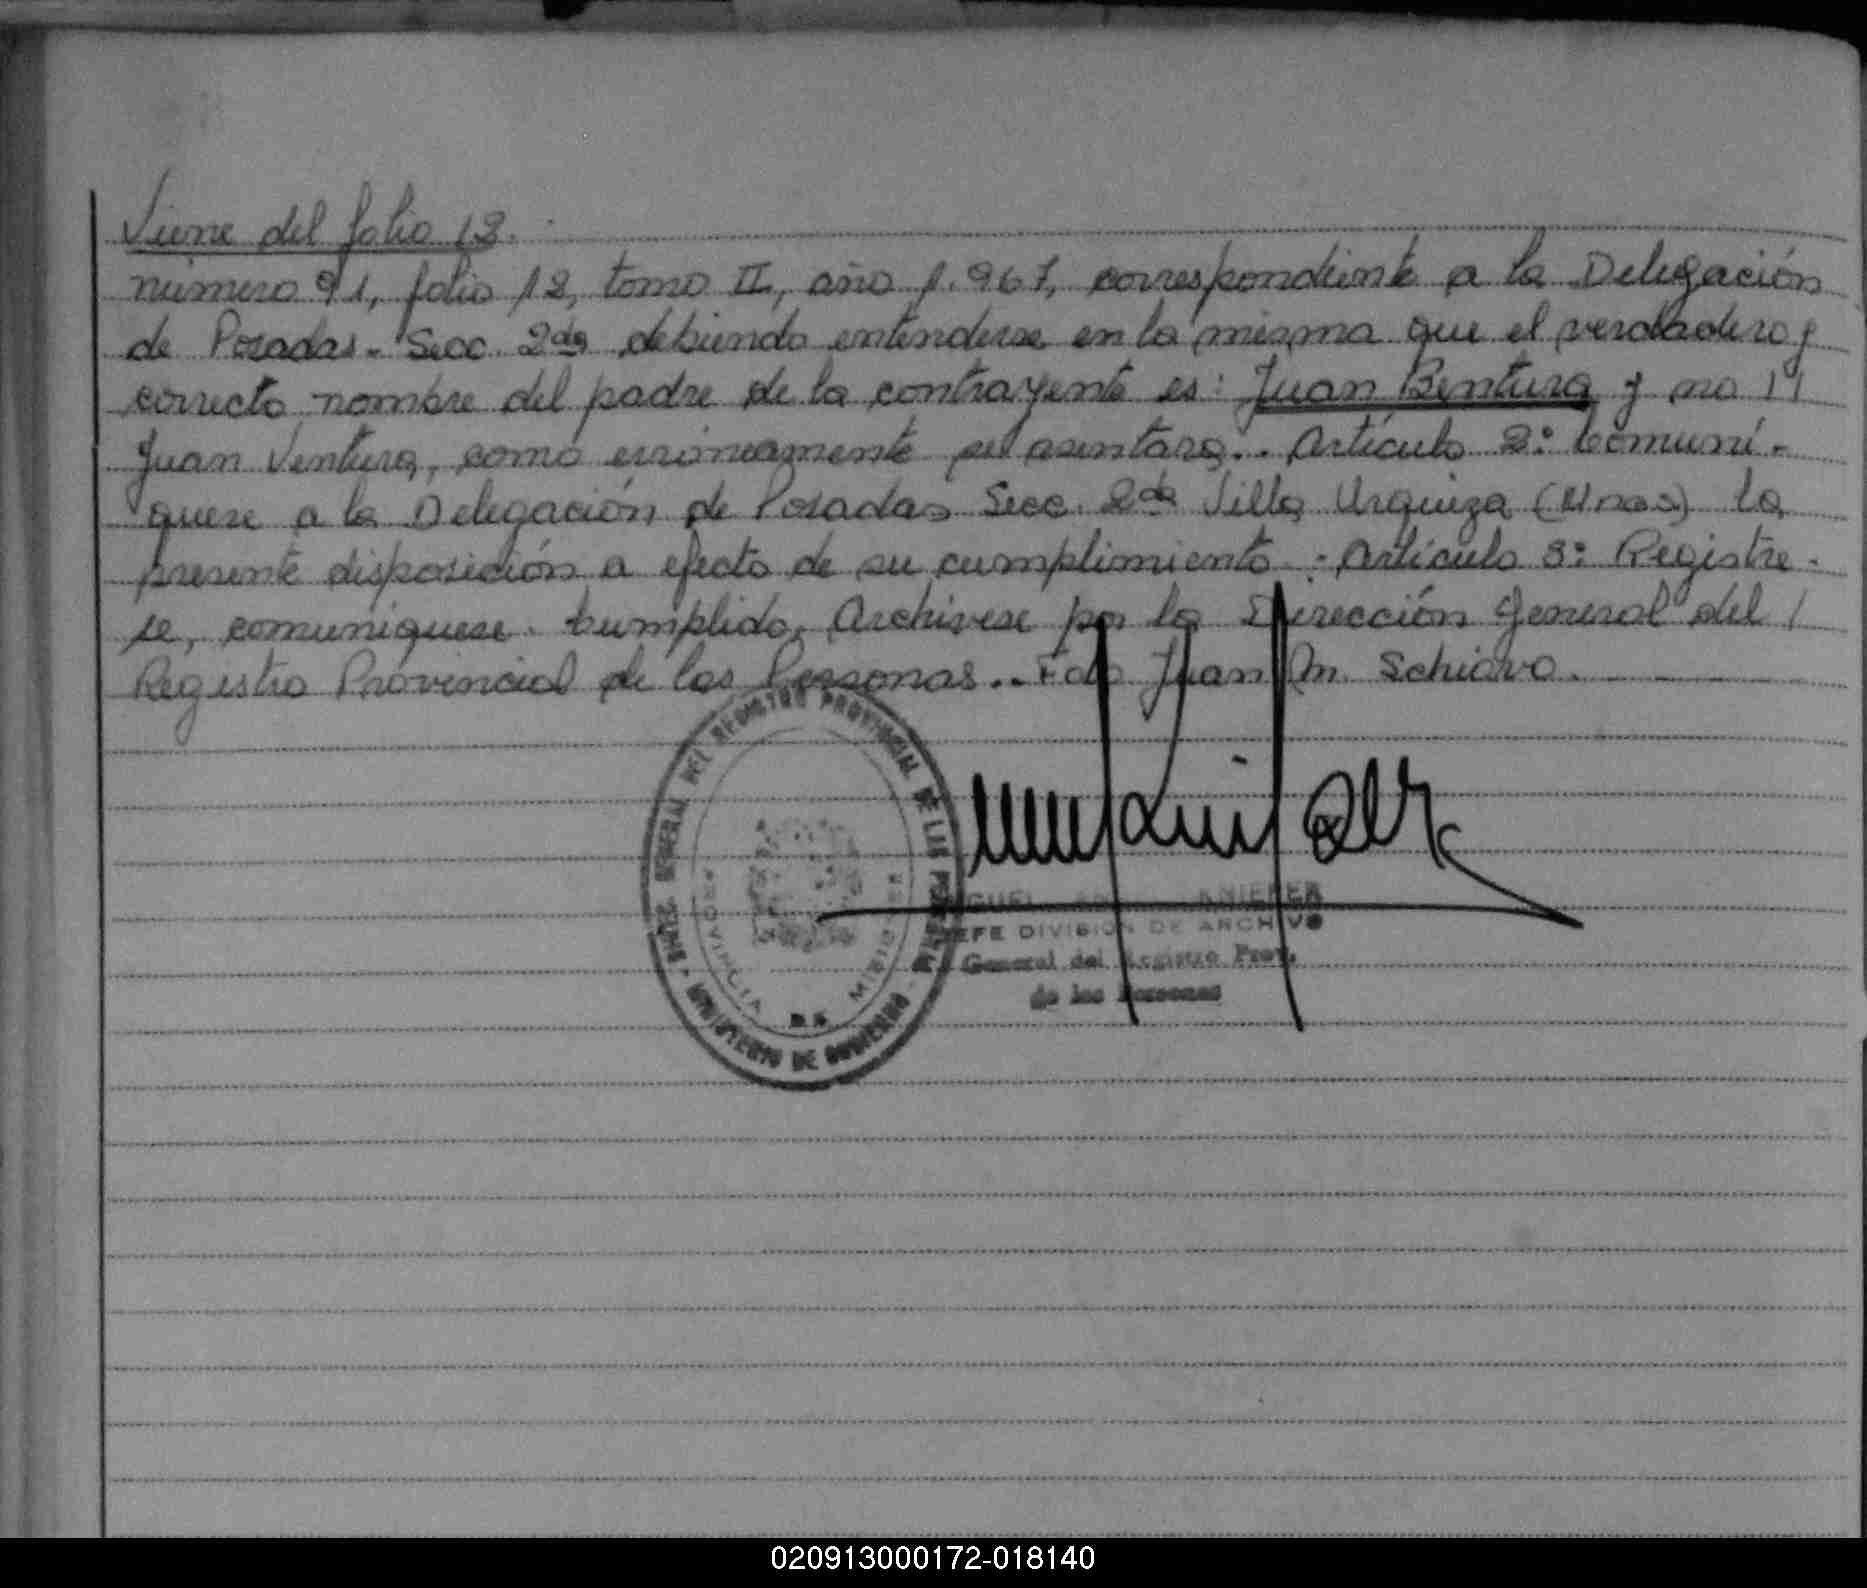 Viene del folio 12.
número 91, folio 12, tomo II, año 1.967, correspondiente a la Delegación
de Posadas - Secc. 2da debiendo entenderse en la misma que el verdadero y
correcto nombre del padre de la contrayente es: Juan Bentura y no //
Juan Ventura, como erróneamente se asentara.. Artículo 2º: Comuní-
quese a la Delegación de Posadas Secc. 2da Villa Urquiza (Mnes) la
presente disposición a efecto de su cumplimiento.- Artículo 3º: Registre-
se, comuníquese. Cumplido, Archívese por la Dirección General del /
Registro Provincial de las Personas.. Fdo Juan M. Schiavo.
GENERAL DEL REGISTRO PROVINCIAL DE LAS PERSONAS
MINISTERIO DE GOBIERNO
PROVINCIA DE MISIONES
KNIEPER
JEFE DIVISION DE ARCHIVO
General del Registro Prov.
de las Personas
020913000172-018140